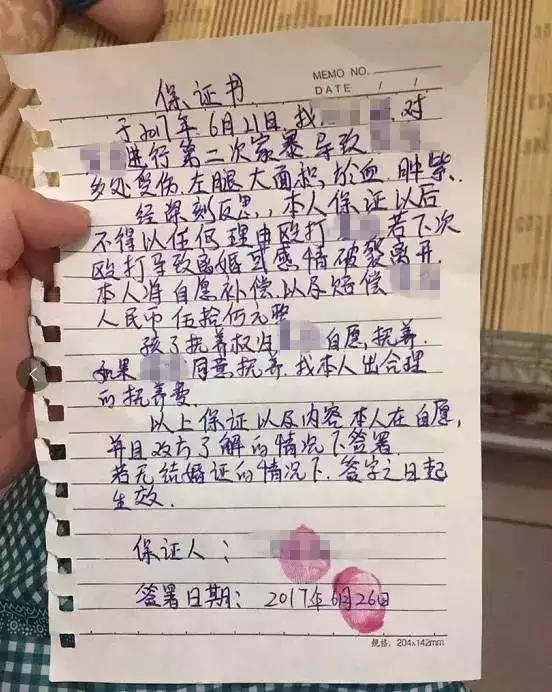 MEMO NO.
DATE / /
保证书
于2017年6月21日,我 对
进行第二次家暴,导致
多处受伤,左腿大面积,淤血,肿紫.
经深刻反思,本人保证以后
不得以任何理由殴打 若下次
殴打导致离婚或感情破裂离开.
本人将自愿补偿,以及赔偿
人民币伍拾 元
孩子抚养权归 自愿,抚养.
如果 同意,抚养,我本人出合理
的抚养费.
以上保证以及内容本人在自愿,
并且 了解的情况下签署.
若无结婚证的情况下,签字之日起
生效.
保证人:
签署日期: 2017年6月26日
规格: 204x142mm